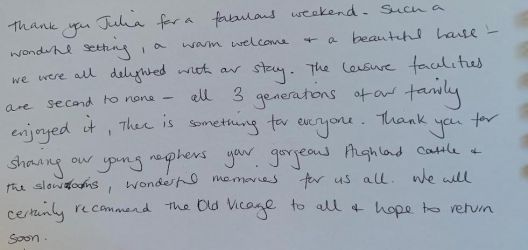 Thank you Julia for a fabulous weekend. Such a
wonderful setting, a warm welcome + a beautiful house -
we were all delighted with our stay. The leisure facilities
are second to none - all 3 generations of our family
enjoyed it, There is something for everyone. Thank you for
showing our young nephews your gorgeous Highland Cattle +
the , wonderful memories for us all. We will
certainly recommend the Old Vicarage to all + hope to return
soon.